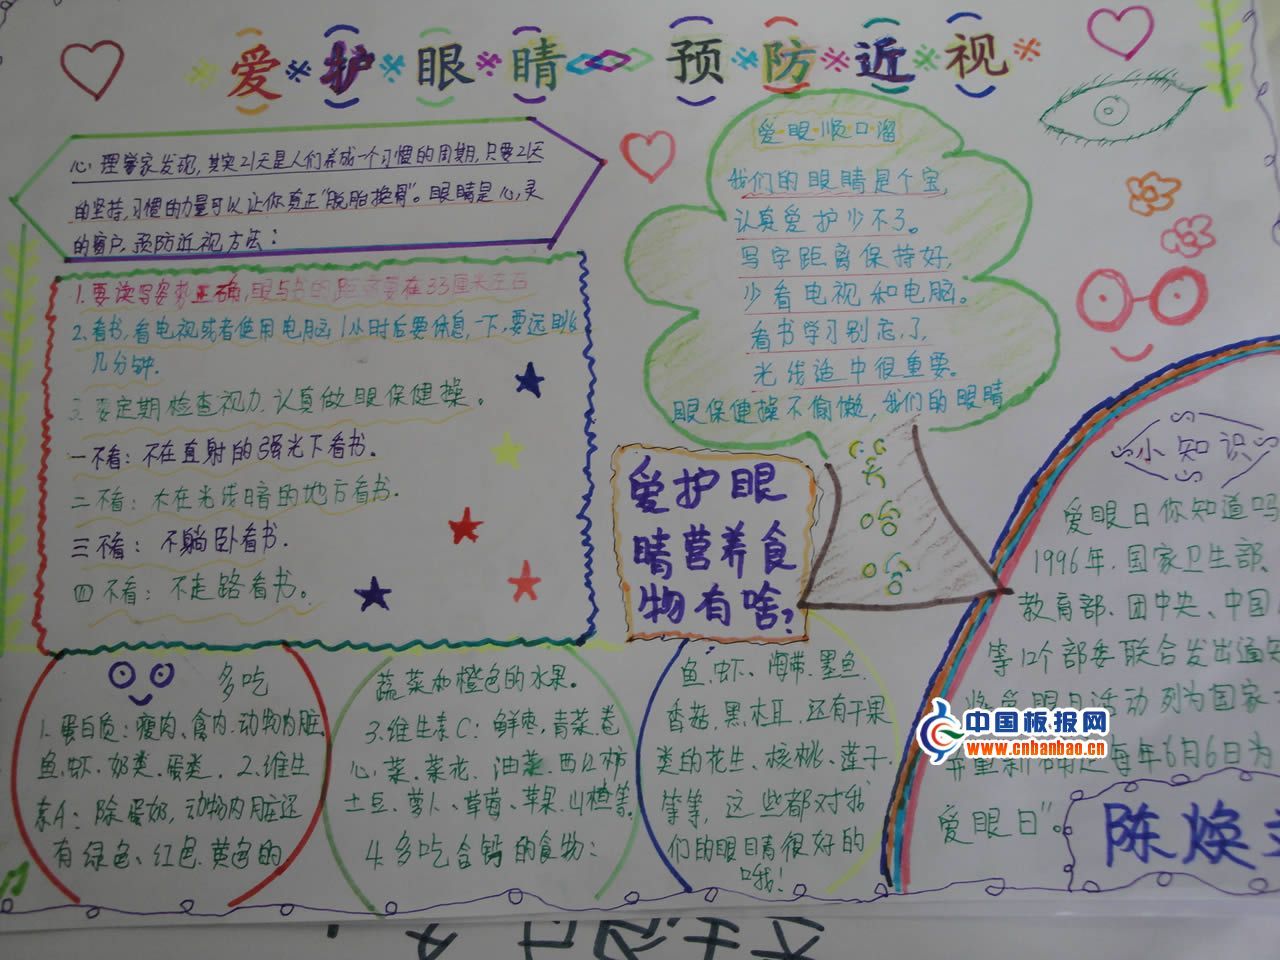 爱护眼睛 预防近视
心理学家发现,其实21天是人们养成一个习惯的周期,只要21天
的坚持,习惯的力量可以让你真正"脱胎换骨"。眼睛是心灵
的窗户,预防近视方法:
1.要读写姿势正确,眼与书的距离要在33厘米左右
2.看书,看电视或者使用电脑1小时后要休息一下,要远眺
几分钟.
3.要定期检查视力,认真做眼保健操。
一不看:不在直射的强光下看书.
二不看:不在光线暗的地方看书.
三不看:不躺卧看书.
四不看:不走路看书。
爱眼顺口溜
我们的眼睛是个宝,
认真爱护少不了。
写字距离保持好,
少看电视和电脑。
看书学习别忘了,
光线适中很重要。
眼保健操不偷懒,我们的眼睛
爱护眼
睛营养食
物有啥?
多吃
1.蛋白质:瘦肉、禽肉、动物内脏
鱼、虾、奶类、蛋类. 2.维生
素A:除蛋奶,动物内脏还
有绿色、红色、黄色的
蔬菜和橙色的水果。
3.维生素C:鲜枣、青菜、卷
心菜、菜花、油菜、西红柿
土豆、萝卜、草莓、苹果、山楂等.
4.多吃含钙的食物:
鱼、虾、海带、墨鱼、
香菇、黑木耳、还有干果
类的花生、核桃、莲子
等等,这些都对我
们的眼睛很好的
哦!
小知识
爱眼日你知道吗
1996年,国家卫生部、
教育部、团中央、中国
等12个部委联合发出通知
将爱眼日活动列为国家
并重新确定每年6月6日为
爱眼日"。
陈焕
中国板报网
www.cnbanbao.cn